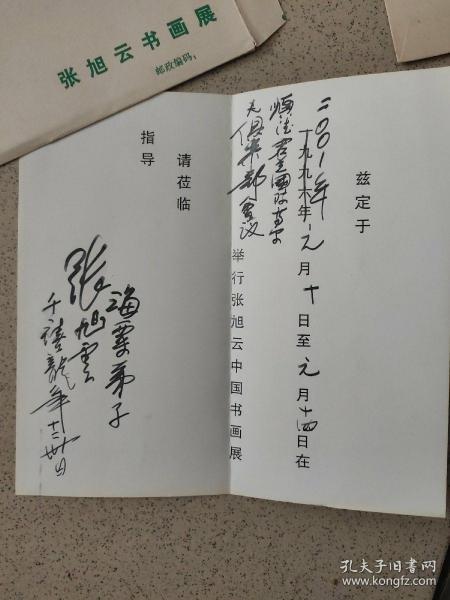 张旭云书画展
邮政编码:
兹定于
二〇〇一年
一九九六年元月十日至元月十四日在
顺德君兰国际高尔
夫俱乐部会议
举行张旭云中国书画展
请莅临
指导
海粟弟子
张旭雲
千禧龍年十二卅日
孔夫子旧书网
www.kongfz.com